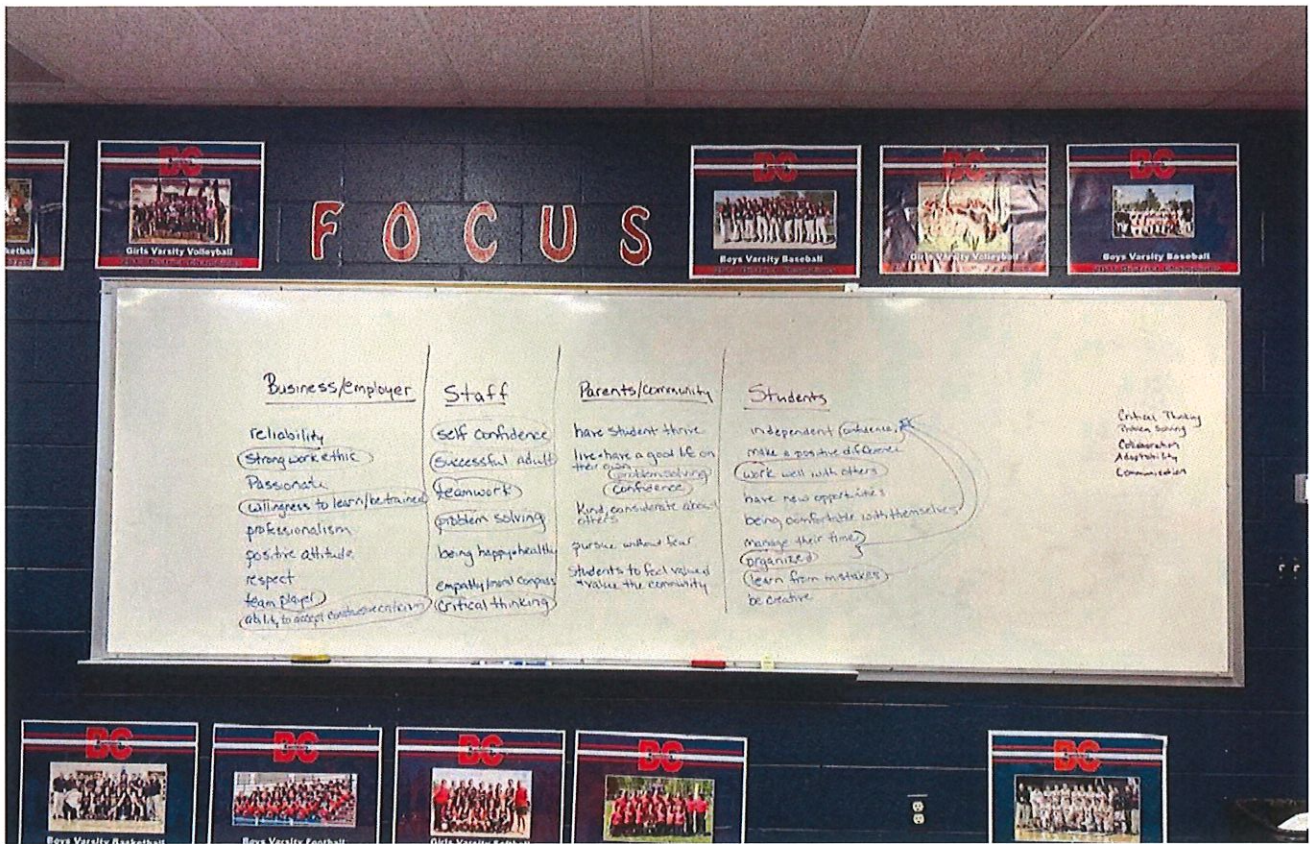 DC
DC
DC
DC
Girls Varsity Volleyball
FOCUS
Boys Varsity Baseball
Girls Varsity Volleyball
Boys Varsity Baseball
Business/employer
reliability
strong work ethic
Passionate
willingness to learn/be trained
professionalism
positive attitude
respect
team player
ability to accept constructive criticism
Staff
self confidence
successful adult
teamwork
problem solving
being happy + healthy
empathy/moral compass
critical thinking
Parents/community
have student thrive
live + have a good life on
their own
problem solving
confidence
Kind, considerate about
others
pursue without fear
Students to feel valued
+ value the community
Students
independent confidence
make a positive difference
work well with others
have new opportunities
being comfortable with themselves
manage their time
organized
learn from mistakes
be creative
Critical Thinking
Problem Solving
Collaboration
Adaptability
Communication
DC
DC
DC
DC
DC
Boys Varsity Basketball
Boys Varsity Football
Girls Varsity Softball